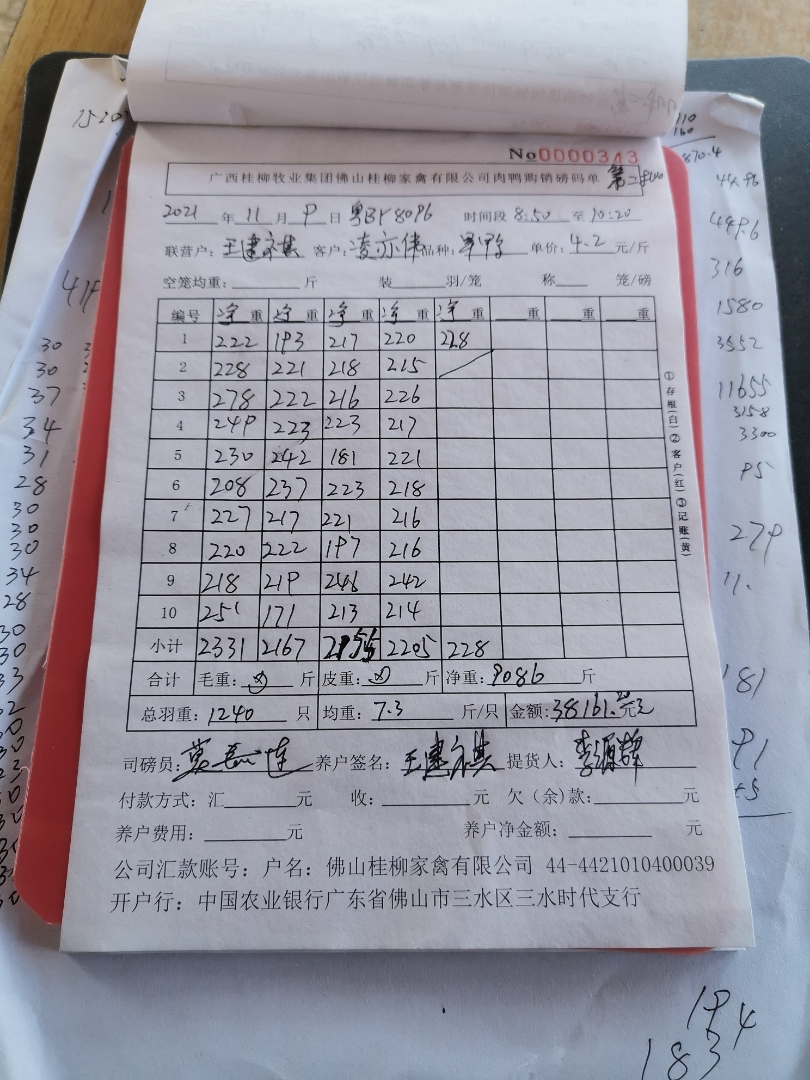 No0000343
广西桂柳牧业集团佛山桂柳家禽有限公司肉鸭购销磅码单 第二
2021 年 11 月 9 日 粤BY8096 时间段 8:50 至 10:20
联营户: 王建祺 客户: 凌亦伟 品种: 单价: 4.2 元/斤
空笼均重: 斤 装 羽/笼 称 笼/磅
编号 净重 净重 净重 净重 净重 重 重 重
1 222 193 217 220 228
2 228 221 218 215
3 278 222 216 226
4 249 223 223 217
5 230 242 181 221
6 208 237 223 218
7 227 217 221 216
8 220 222 197 216
9 218 219 246 242
10 251 171 213 214
小计 2331 2167 2155 2205 228
合计 毛重: 斤 皮重: 斤 净重: 9086 斤
总羽重: 1240 只 均重: 7.3 斤/只 金额: 38161. 元
司磅员: 养户签名: 王建祺 提货人: 李源辉
付款方式: 汇 元 收: 元 欠（余）款: 元
养户费用: 元 养户净金额: 元
公司汇款账号：户名：佛山桂柳家禽有限公司 44-4421010400039
开户行：中国农业银行广东省佛山市三水区三水时代支行
①存根(白)②客户(红)③记账(黄)
30
30
37
34
31
28
30
30
30
34
28
44.96
449.6
316
1580
3552
11655
3158
3300
95
279
181
91
194
183